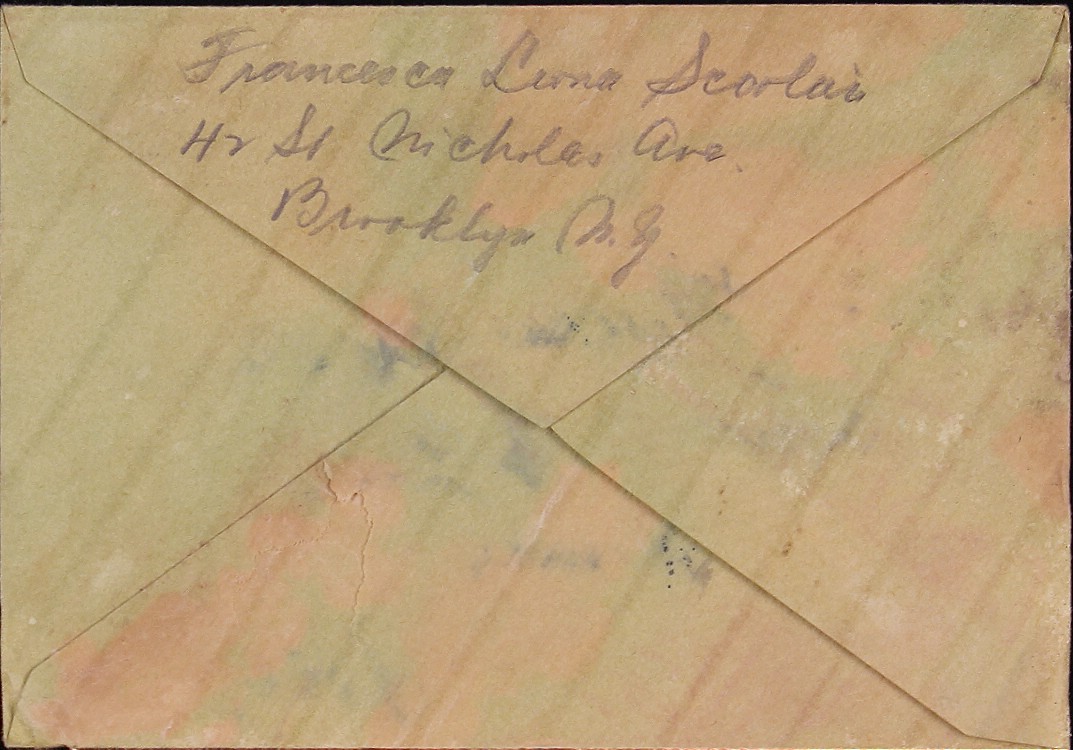 Francesca Luna Scovlai
42 St Nicholas Ave.
Brooklyn N.Y